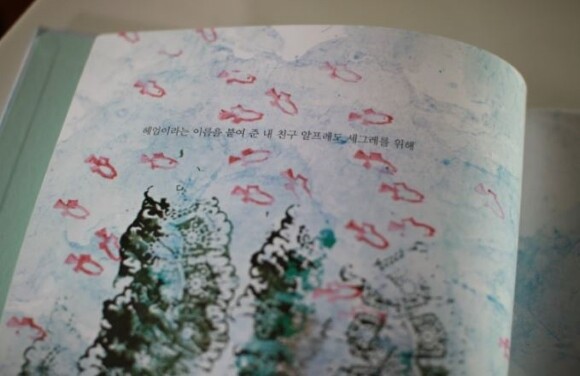 헤엄이라는 이름을 붙여 준 내 친구 알프레도 세그레를 위해